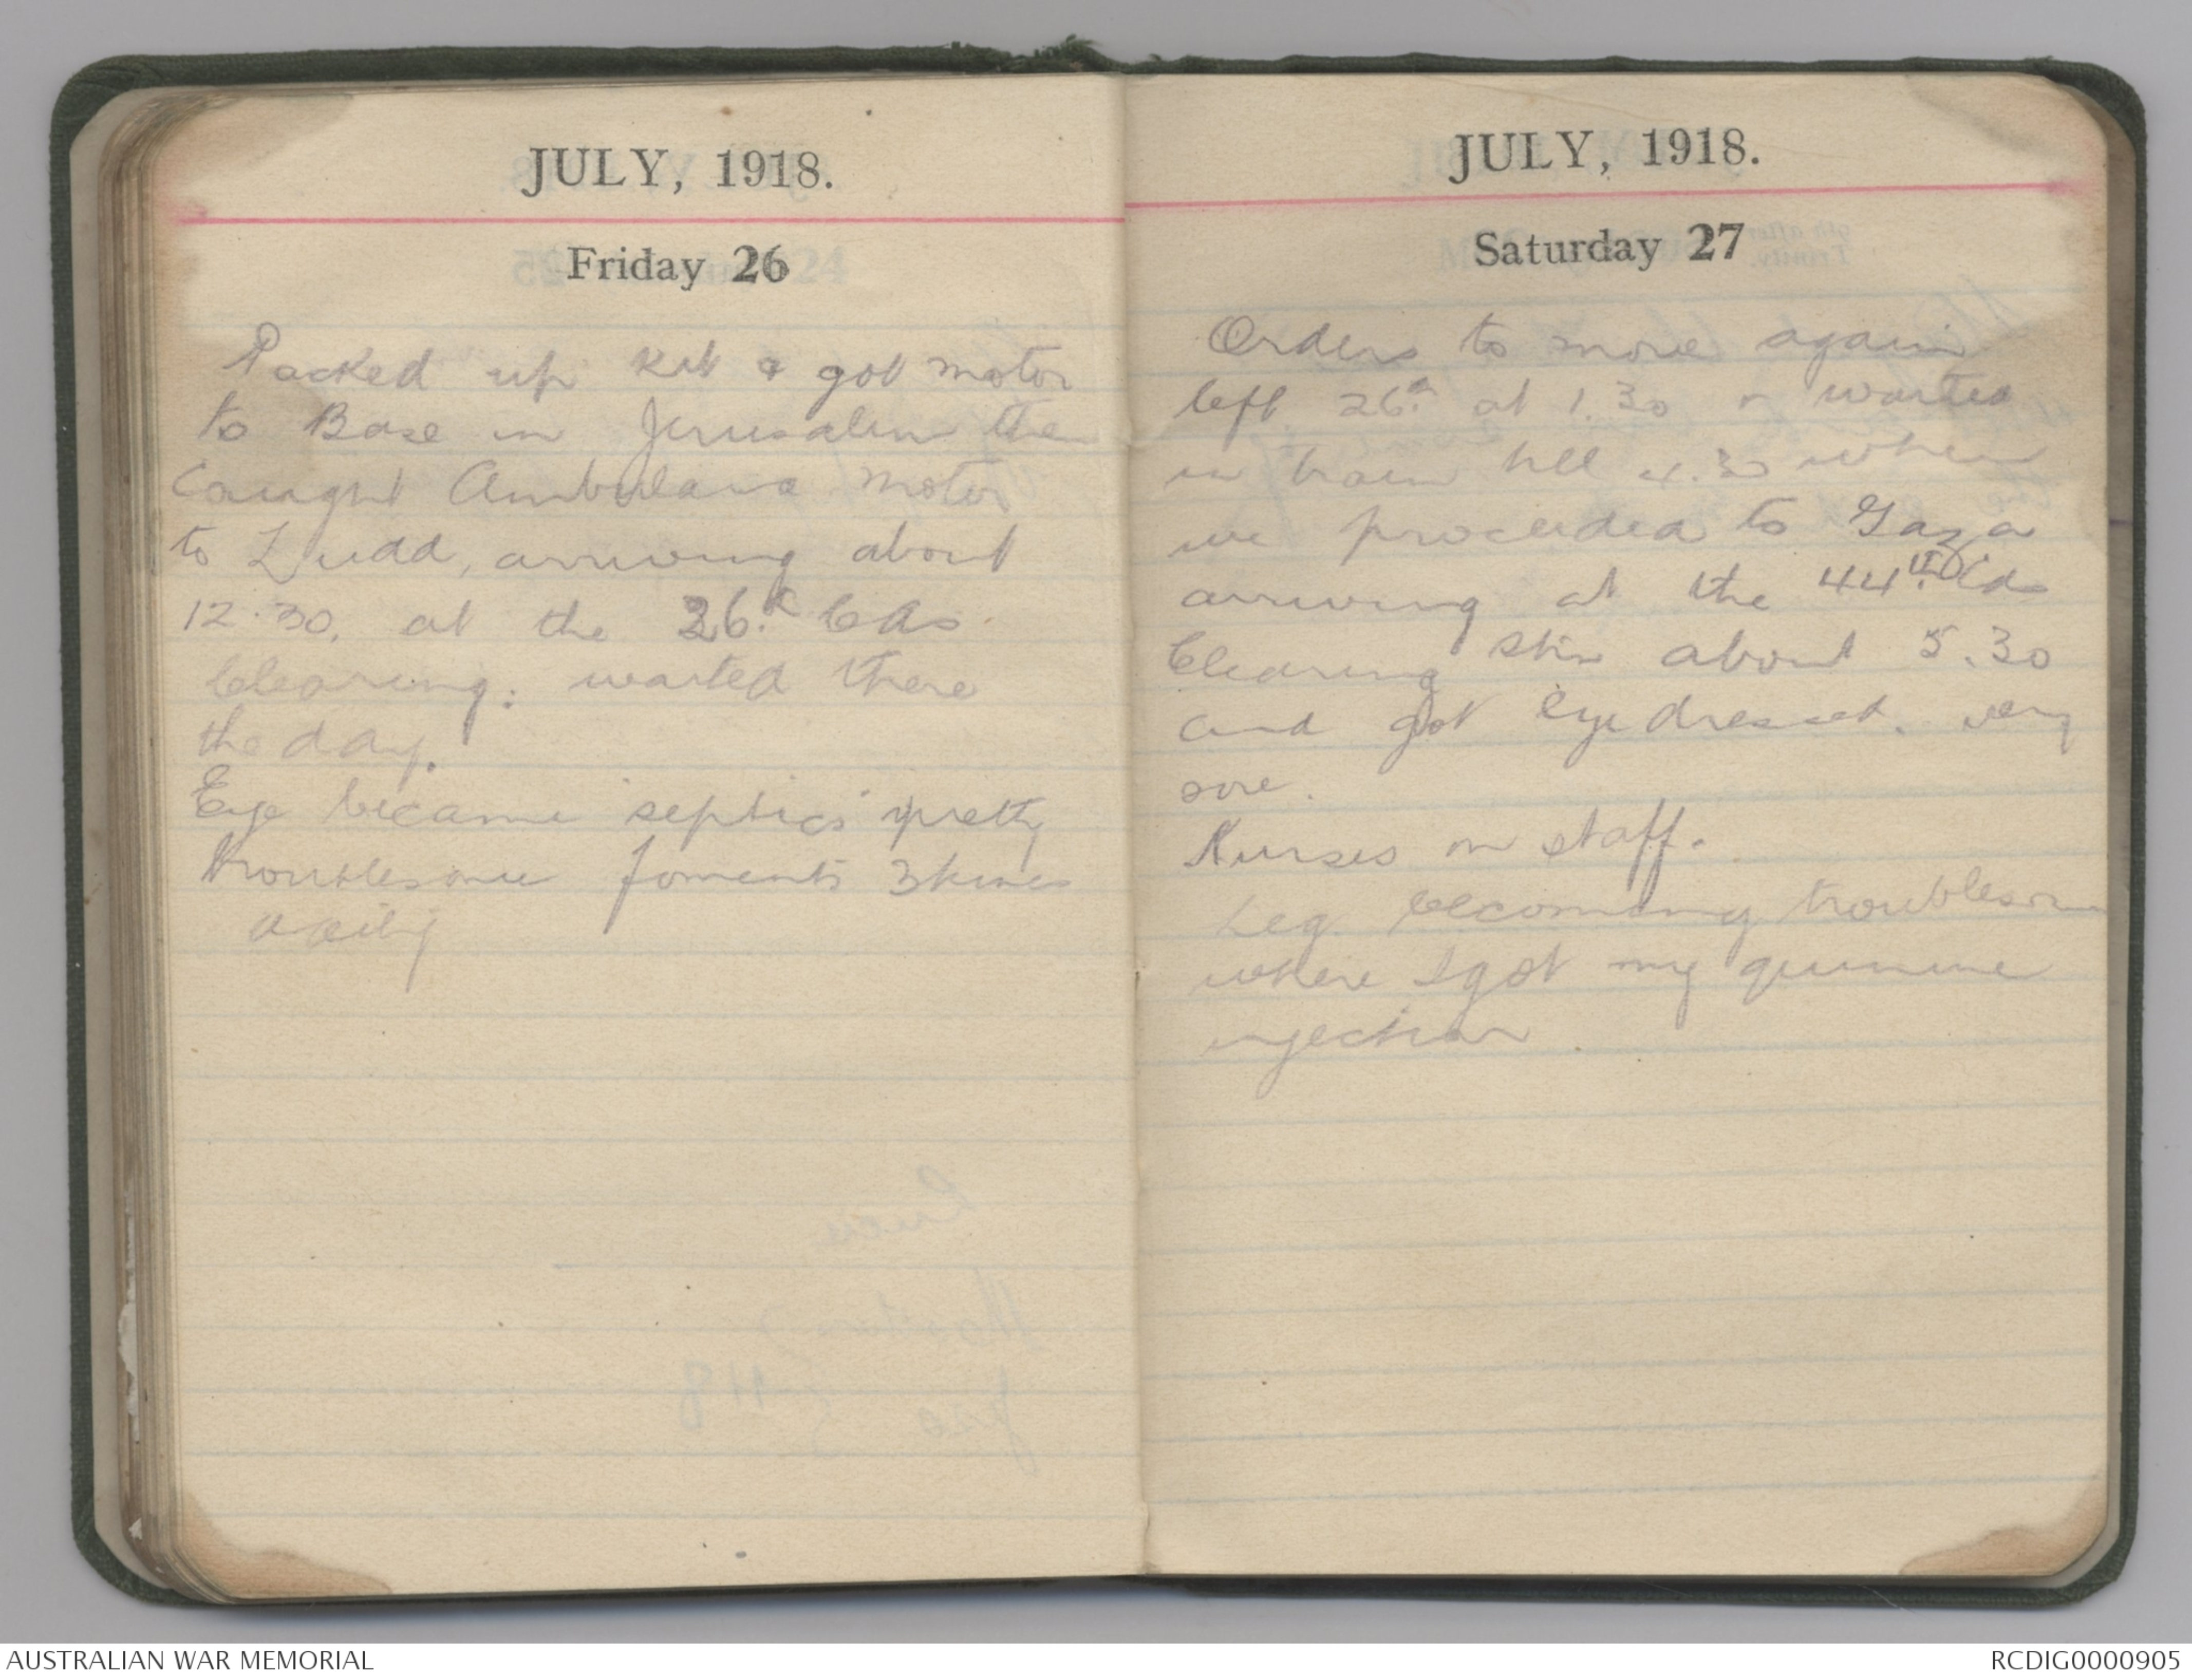 JULY, 1918.
Friday 26
Packed up kit & got motor
to Base in Jerusalem then
Caught Ambulance motor
to Ludd, arriving about
12.30. at the 26th Cas
Clearing: waited there
the day.
Eye became septics pretty
troublesome foments 3 times
daily
JULY, 1918.
Saturday 27
Orders to move again
left 26th at 1.30 & waited
in train till 4.30 when
we proceeded to Gaza
arriving at the 44th Cas
Clearing Stn about 5.30
and got eye dressed. very
sore.
Nurses on staff.
Leg becoming troublesome
where I got my quinine
injection.
AUSTRALIAN WAR MEMORIAL
RCDIG0000905